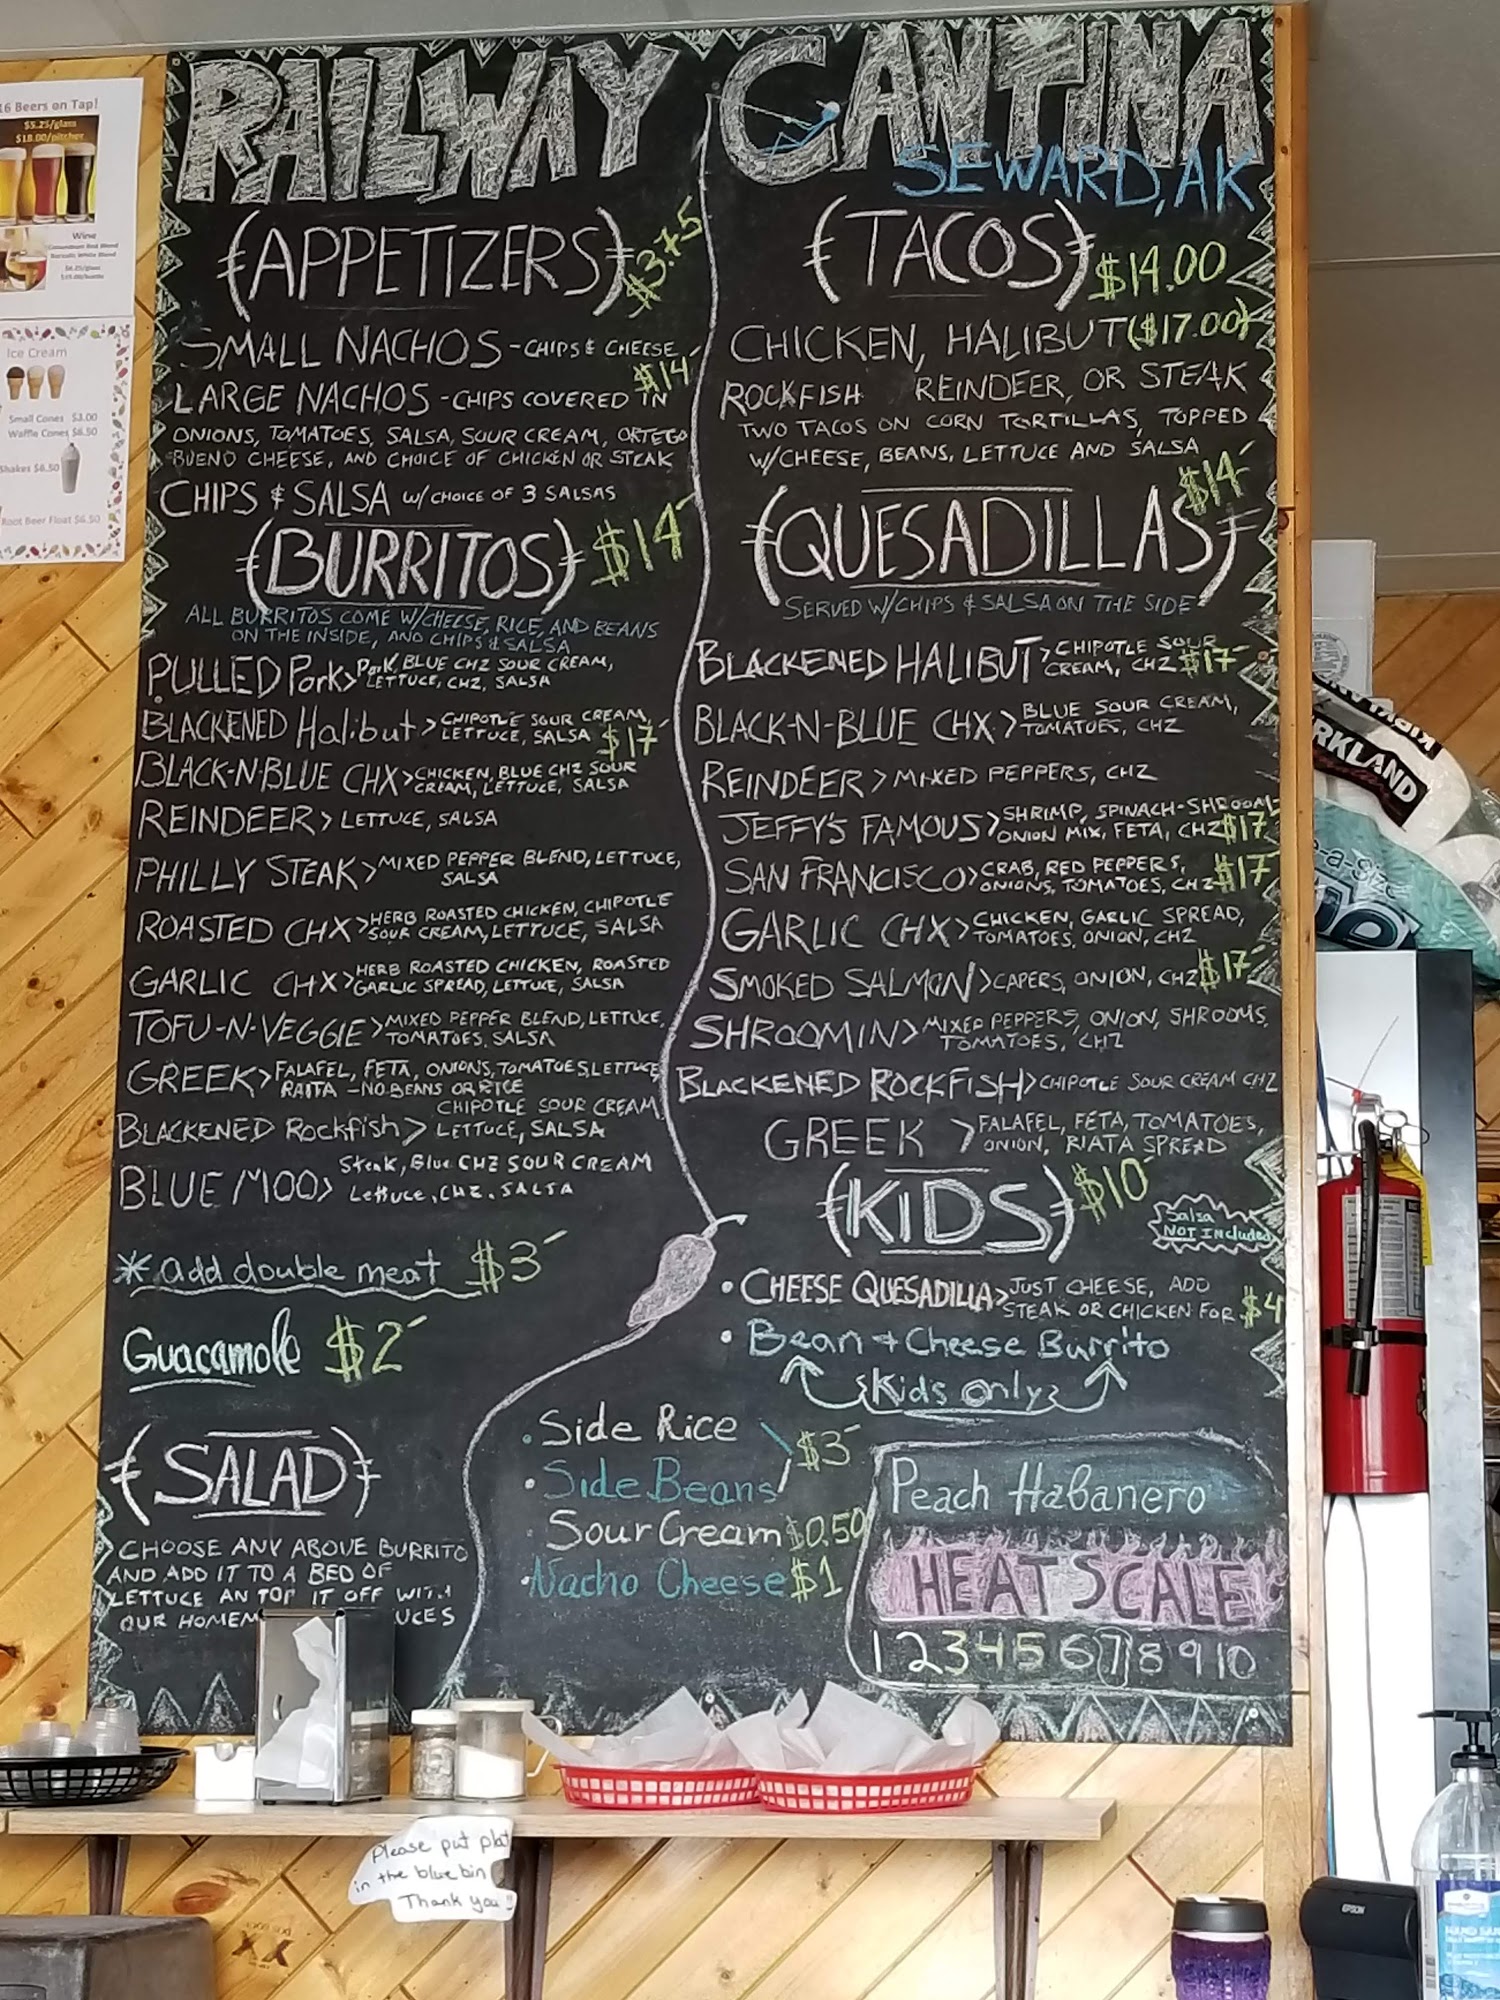 RAILWAY CANTINA
SEWARD, AK
(APPETIZERS) $3.75
SMALL NACHOS - CHIPS & CHEESE
$14
LARGE NACHOS - CHIPS COVERED IN
ONIONS, TOMATOES, SALSA, SOUR CREAM, ORTEGO
BUENO CHEESE, AND CHOICE OF CHICKEN OR STEAK
CHIPS & SALSA W/ CHOICE OF 3 SALSAS
(BURRITOS) $14
ALL BURRITOS COME W/CHEESE, RICE, AND BEANS
ON THE INSIDE, AND CHIPS & SALSA
PULLED Pork > Pork, BLUE CHZ SOUR CREAM,
LETTUCE, CHZ, SALSA
BLACKENED Halibut > CHIPOTLE SOUR CREAM,
LETTUCE, SALSA $17
BLACK-N-BLUE CHX > CHICKEN, BLUE CHZ SOUR
CREAM, LETTUCE, SALSA
REINDEER > LETTUCE, SALSA
PHILLY STEAK > MIXED PEPPER BLEND, LETTUCE,
SALSA
ROASTED CHX > HERB ROASTED CHICKEN, CHIPOTLE
SOUR CREAM, LETTUCE, SALSA
GARLIC CHX > HERB ROASTED CHICKEN, ROASTED
GARLIC SPREAD, LETTUCE, SALSA
TOFU-N-VEGGIE > MIXED PEPPER BLEND, LETTUCE,
TOMATOES, SALSA
GREEK > FALAFEL, FETA, ONIONS, TOMATOES, LETTUCE,
RAITA - NO BEANS OR RICE
BLACKENED Rockfish > CHIPOTLE SOUR CREAM,
LETTUCE, SALSA
BLUE MOO > Steak, Blue CHZ SOUR CREAM
Lettuce, CHZ, SALSA
* add double meat $3
Guacamole $2
(SALAD)
CHOOSE ANY ABOVE BURRITO
AND ADD IT TO A BED OF
LETTUCE AN TOP IT OFF WITH
OUR HOMEM UCES
(TACOS) $14.00
CHICKEN, HALIBUT ($17.00)
ROCKFISH REINDEER, OR STEAK
TWO TACOS ON CORN TORTILLAS, TOPPED
W/CHEESE, BEANS, LETTUCE AND SALSA
(QUESADILLAS) $14
SERVED W/CHIPS & SALSA ON THE SIDE
BLACKENED HALIBUT > CHIPOTLE SOUR
CREAM, CHZ $17
BLACK-N-BLUE CHX > BLUE SOUR CREAM,
TOMATOES, CHZ
REINDEER > MIXED PEPPERS, CHZ
JEFFY'S FAMOUS > SHRIMP, SPINACH-SHROOM-
ONION MIX, FETA, CHZ $17
SAN FRANCISCO > CRAB, RED PEPPERS,
ONIONS, TOMATOES, CHZ $17
GARLIC CHX > CHICKEN, GARLIC SPREAD,
TOMATOES, ONION, CHZ
SMOKED SALMON > CAPERS, ONION, CHZ $17
SHROOMIN > MIXED PEPPERS, ONION, SHROOMS,
TOMATOES, CHZ
BLACKENED ROCKFISH > CHIPOTLE SOUR CREAM CHZ
GREEK > FALAFEL, FETA, TOMATOES,
ONION, RIATA SPREAD
(KIDS) $10
Salsa
NOT Included
• CHEESE QUESADILLA > JUST CHEESE, ADD
STEAK OR CHICKEN FOR $4
• Bean + Cheese Burrito
{Kids Only}
• Side Rice
• Side Beans $3
Sour Cream $0.50
• Nacho Cheese $1
Peach Habanero
HEAT SCALE
1 2 3 4 5 6 7 8 9 10
16 Beers on Tap!
$5.25/glass
$18.00/pitcher
Wine
Conundrum Red Blend
White Blend
Ice Cream
Small Cones $3.00
Waffle Cones $6.50
Shakes $6.50
Root Beer Float $6.50
Please put plat
in the blue bin
Thank you!!
RKLAND
EPSON
HAND SA